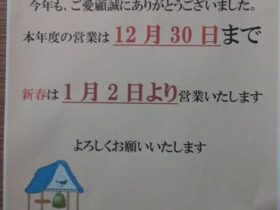 今年も、ご愛顧誠にありがとうございました。
本年度の営業は12月30日まで
新春は1月2日より営業いたします
よろしくお願いいたします